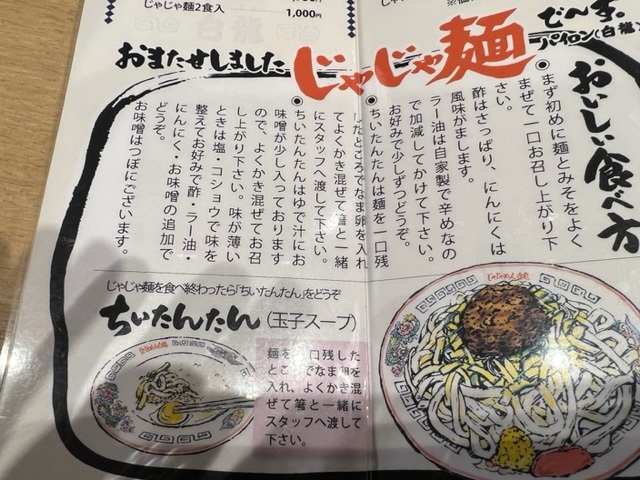 じゃじゃ麺2食入
1,000円
おまたせしました
じゃじゃ麺
でんす。
パイロン(白龍)
おいしい食べ方
●まず初めに麺とみそをよく
まぜて一口お召し上がり下
さい。
酢はさっぱり、にんにくは
風味がまします。
ラー油は自家製で辛めなの
で加減してかけて下さい。
お好みで少しずつどうぞ。
●ちいたんたんは麺を一口残
したところでなま卵を入れ
てよくかき混ぜて箸と一緒
にスタッフへ渡して下さい。
●ちいたんたんはゆで汁にお
味噌が少し入っております
ので、よくかき混ぜてお召
し上がり下さい。味が薄い
ときは塩・コショウで味を
整えてお好みで酢・ラー油・
にんにく・お味噌の追加で
どうぞ。
お味噌はつぼにございます。
じゃじゃ麺を食べ終わったら「ちいたんたん」をどうぞ
ちいたんたん(玉子スープ)
麺を一口残した
ところでなま卵を
入れ、よくかき混
ぜて箸と一緒に
スタッフへ渡して
下さい。